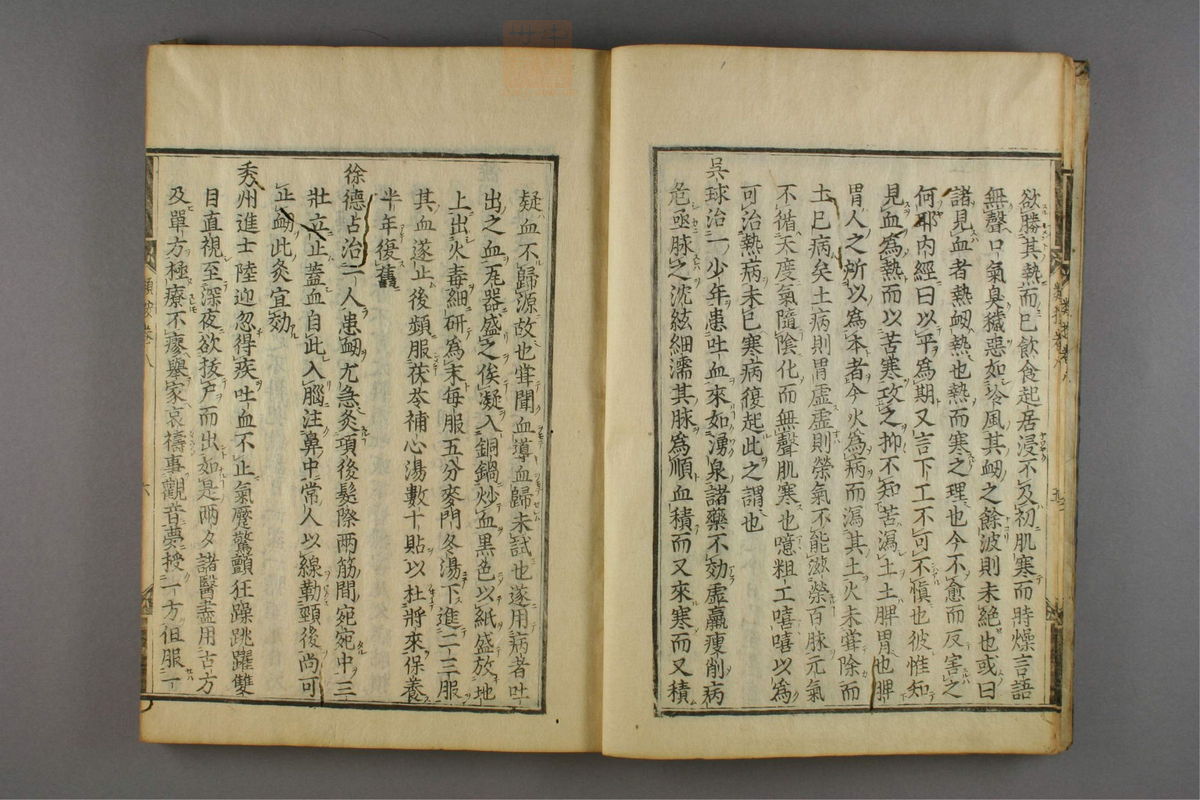 欲勝其熱而已飲食起居浸不及初肌寒而時燥言語
無聲口氣臭穢惡如冷風其衄之餘波則未絶也或曰
諸見血者熱衄熱也熱而寒之理也今不愈而反害之
何耶内經曰以平爲期又言下工不可不愼也彼惟知
見血爲熱而以苦寒攻之抑不知苦瀉土土脾胃也脾
胃人之所以爲本者今火爲病而瀉其土火未甞除而
土已病矣土病則胃虛虛則榮氣不能滋榮百脉元氣
不循天度氣隨陰化而無聲肌寒也噫粗工嘻嘻以爲
可治熱病未已寒病復起此之謂也
吳球治一少年患吐血來如湧泉諸藥不効虛羸瘦削病
危亟脉之沈絃細濡其脉爲順血積而又來寒而又積
疑血不歸源故也甞聞血導血歸未試也遂用病者吐
出之血瓦器盛之俟凝入銅鍋炒血黑色以紙盛放地
上出火毒細研爲末每服五分麥門冬湯下進二三服
其血遂止後頻服茯苓補心湯數十貼以杜將來保養
半年復舊
徐德占治一人患衄尤急灸項後髮際兩筋間宛宛中三
壯立止蓋血自此入腦注鼻中常人以線勒頸後尚可
止衄此灸宜効
秀州進士陸迎忽得疾吐血不止氣蹙驚顫狂躁跳躍雙
目直視至深夜欲拔户而出如是兩夕諸醫盡用古方
及單方極療不瘳舉家哀禱事觀音夢授一方但服一